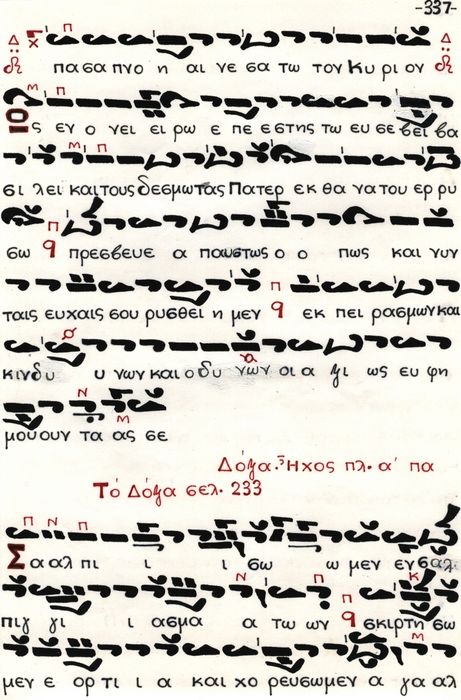 -337-
πα σα πνο η αι νε σα τω τον Κυ ρι ον
Ος εν ο νει ει ρω ε πε ε στης τω ευ σε βει βα
σι λει και τους δεσμωτας Πατερ εκ θα να του ερ ρυ
σω πρεσβευε α παυστως ο ο πως και νυν
ταις ευχαις σου ρυσθει η μεν εκ πει ρασμων και
κινδυ υ νων και ο δυ νων οι α ξι ως ευ φη
μου ουν τα ας σε
Δόξα. Ἦχος πλ. α' πα
Τό Δόξα σελ. 233
Σα αλ πι ι ι ι σω ω μεν εν σαλ
πιγ γι ι ασμα α τω ων σκιρτη σω
μεν ε ορ τι ι α και χο ρευσωμεν α γα αλ